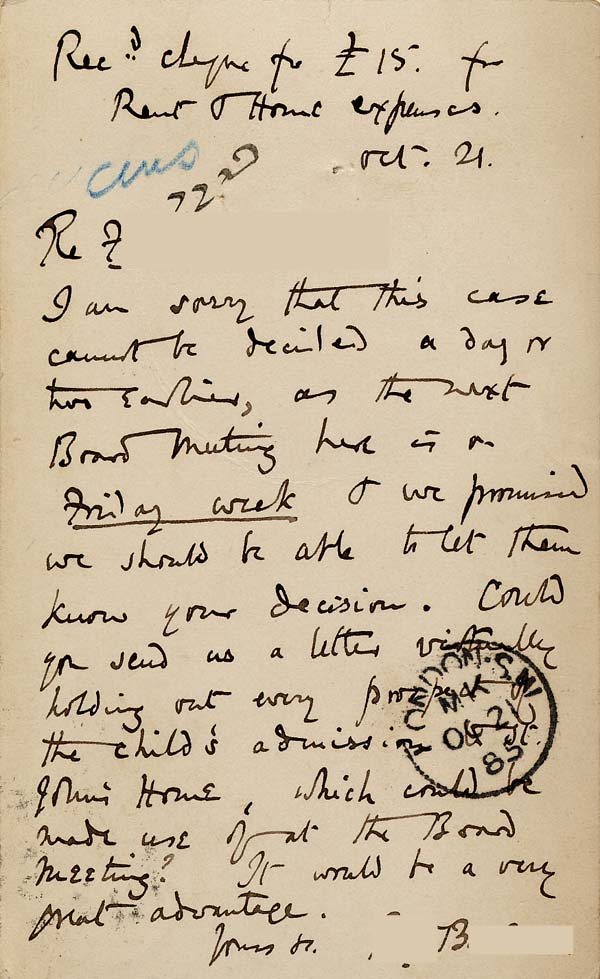 Rec.d cheque for £15. for
Rent & Home expenses.
Oct. 21.
Re F
I am sorry that this case
cannot be decided a day or
two earlier, as the next
Board Meeting here is on
Friday week & we promised
we should be able to let them
know your decision. Could
you send us a letter virtually
holding out every prospect of
the child's admission to St.
John's Home, which could be
made use of at the Board
Meeting? It would be a very
great advantage.
Yours &c. B
LONDON. S.W
M K
OC 21
85